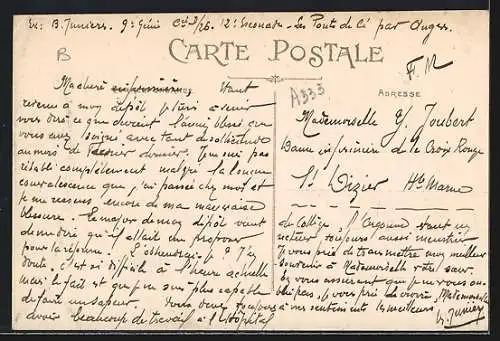 Ex: B. Juniers. 9e Génie Cie 2/26. 12e Escouade. Les Ponts de Cé par Angers.
B
CARTE POSTALE
F. M
A333
ADRESSE
Mademoiselle Y. Joubert
Dame infirmière de la Croix Rouge
St Dizier Hte Marne
Ma chère infirmière, Etant
revenu à mon dépôt
vous dire ce que devient l'ami blessé que
vous avez soigné avec tant de sollicitude
au mois de dernier. Je ne suis pas
rétabli complètement malgré la longue
convalescence que j'ai passée chez moi et
je me ressens encore de ma mauvaise
blessure. Le major de mon dépôt vient
de me dire qu'il allait me proposer
pour la réforme. L'obtiendrai-je ? J'en
doute, c'est si difficile à l'heure actuelle
mais le fait est que je ne suis plus capable
de faire un sapeur. Vous devez toujours
avoir beaucoup de travail à l'Hôpital
du Collège, l'Argonne étant un
secteur toujours aussi meurtrier
Je vous prie de transmettre mon meilleur
souvenir à Mademoiselle votre sœur.
En vous assurant que je ne vous
oublie pas, je vous prie de croire, Mademoiselle
à mes sentiments les meilleurs
B. Juniers